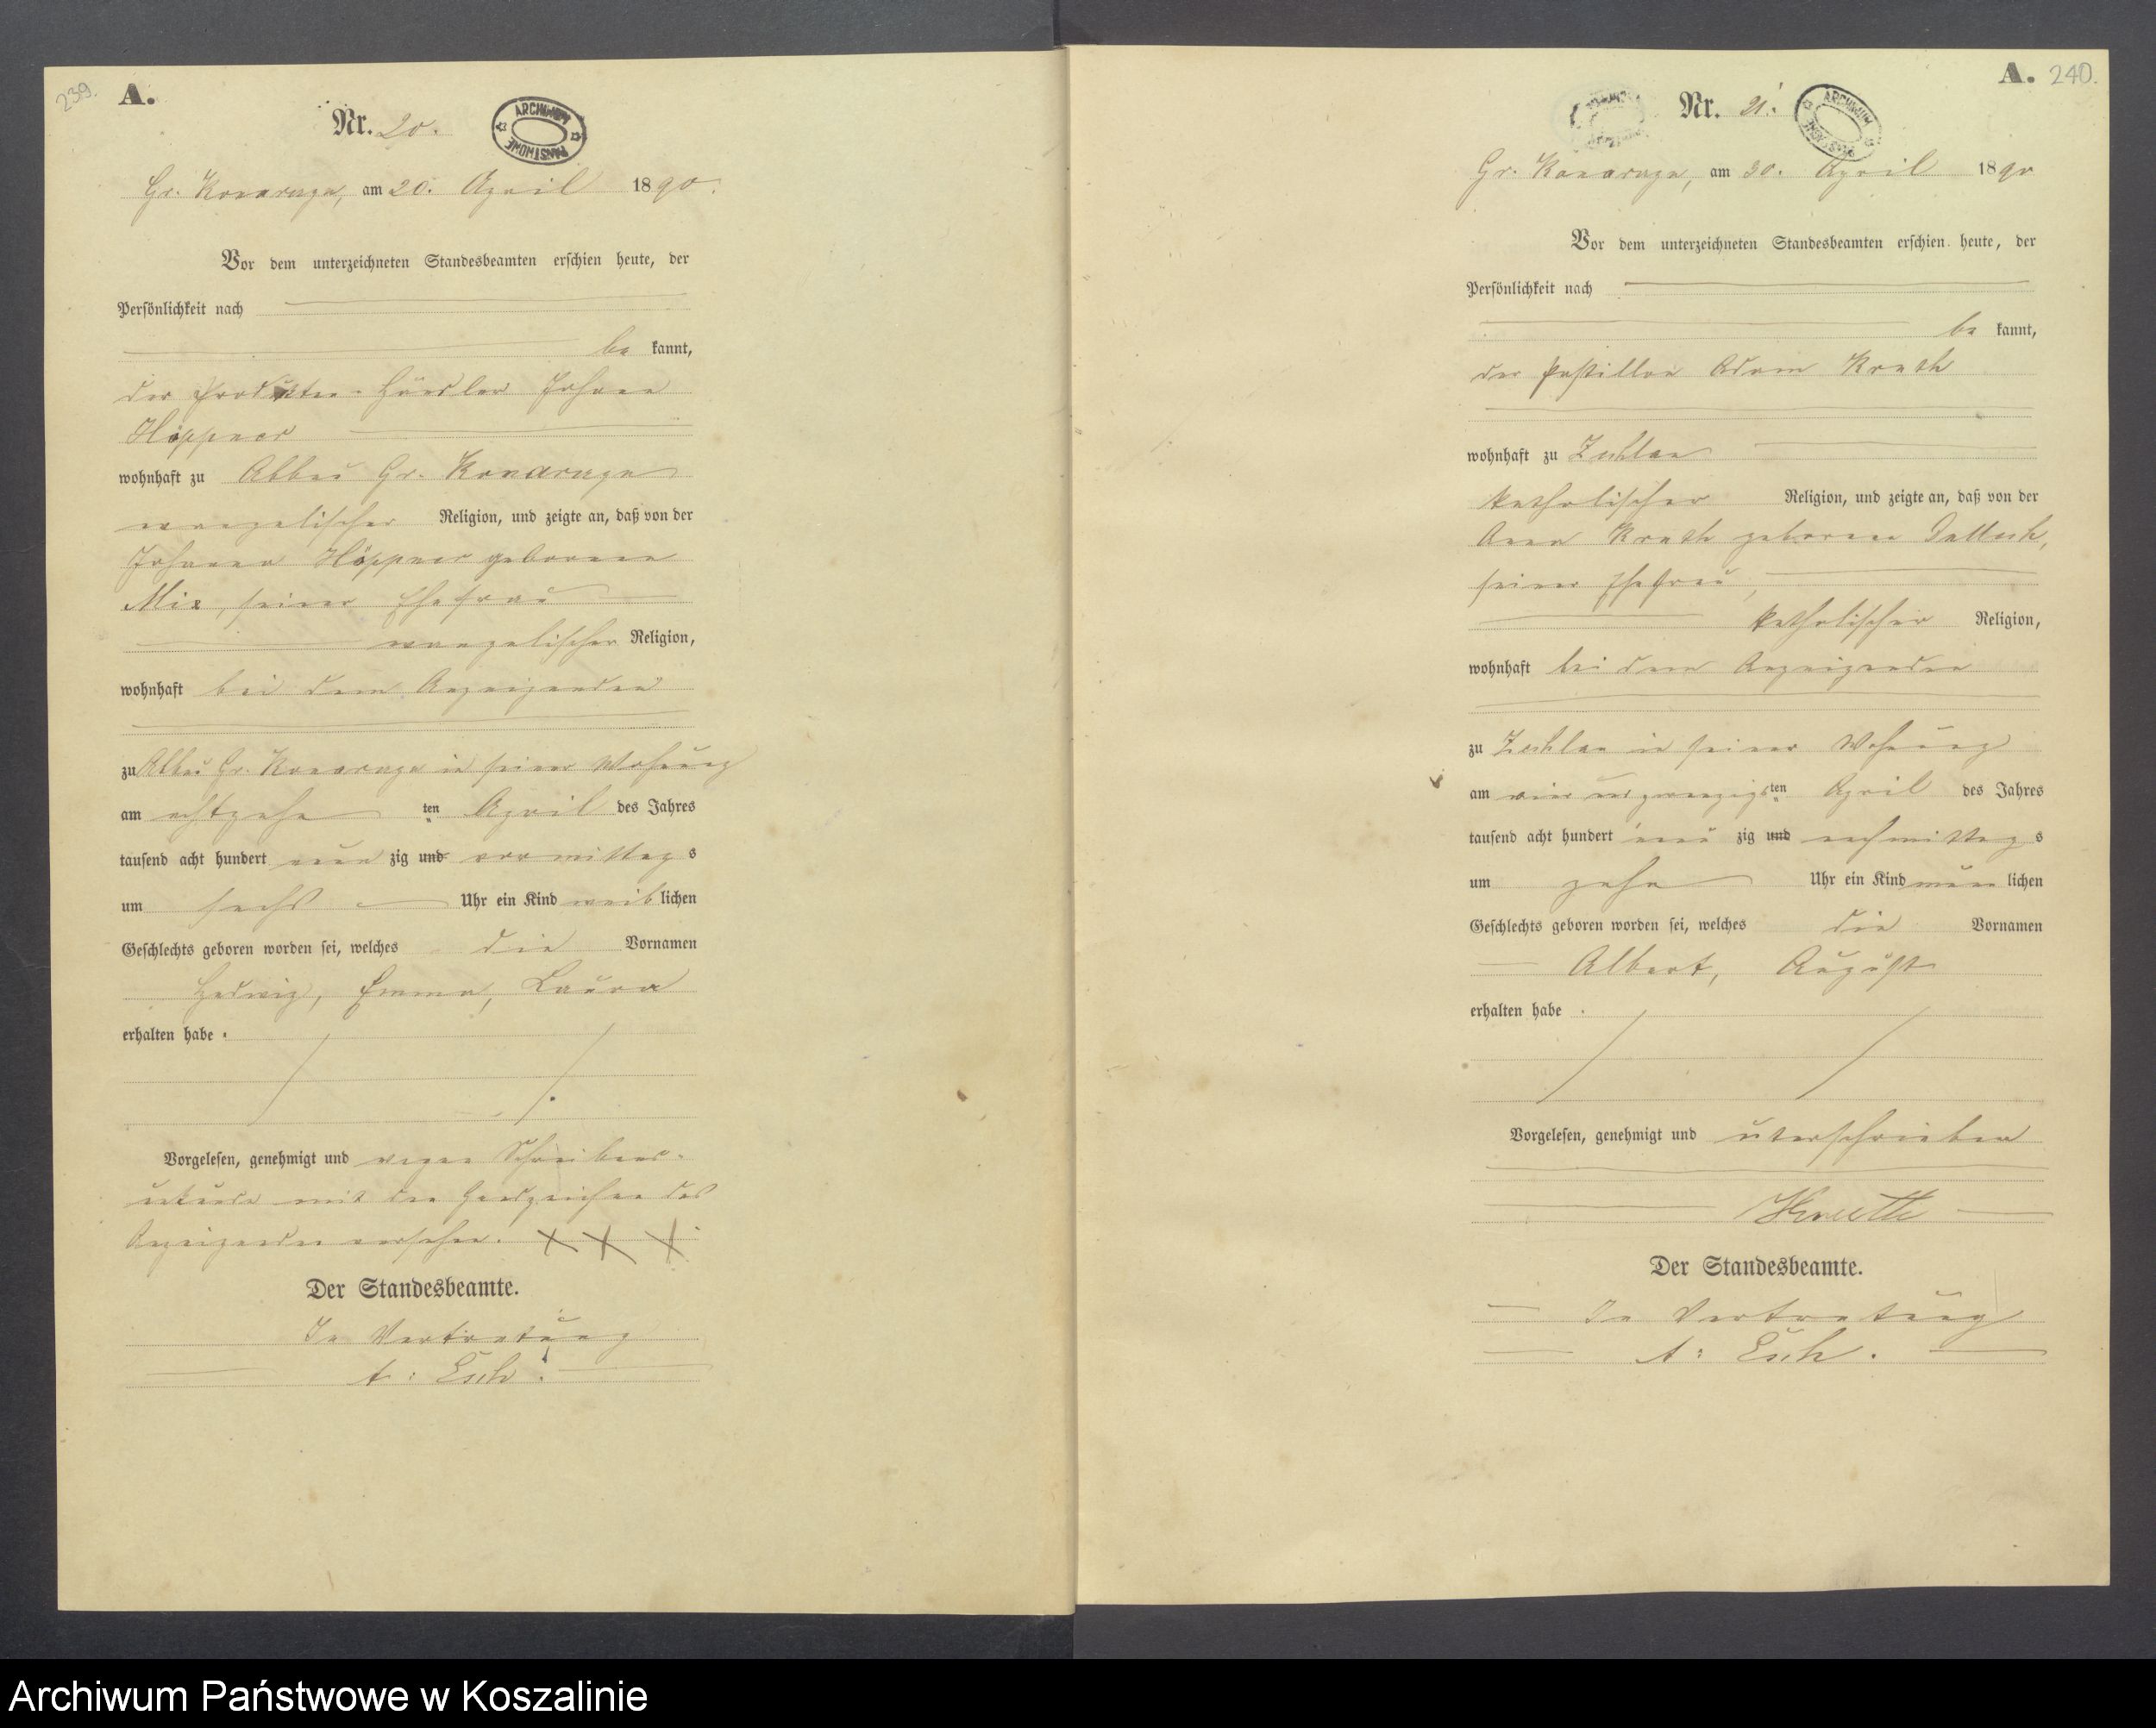 239.
A.
Nr. 20.
ARCHIWUM PAŃSTWOWE
Gr. Konarzyn, am 20. April 1890.
Vor dem unterzeichneten Standesbeamten erschien heute, der
Persönlichkeit nach
be kannt,
der Produkten-Händler Johann
Höppner
wohnhaft zu Abbau Gr. Konarzyn
evangelischer Religion, und zeigte an, daß von der
Johanna Höppner geborene
Mix, seiner Ehefrau
evangelischer Religion,
wohnhaft bei dem Anzeigenden
zu Abbau Gr. Konarzyn in seiner Wohnung
am achtzehn ten April des Jahres
tausend acht hundert neun zig und vormittags
um sechs Uhr ein Kind weib lichen
Geschlechts geboren worden sei, welches die Vornamen
Hedwig, Emma, Laura
erhalten habe.
Vorgelesen, genehmigt und wegen Schreibens-
unkunde mit den Handzeichen des
Anzeigenden versehen. X X X
Der Standesbeamte.
In Vertretung
A: Esch.
A. 240.
Nr. 21.
ARCHIWUM PAŃSTWOWE
Gr. Konarzyn, am 30. April 1890
Vor dem unterzeichneten Standesbeamten erschien heute, der
Persönlichkeit nach
be kannt,
der Postillon Adam
wohnhaft zu Zechlau
katholischer Religion, und zeigte an, daß von der
Anna geborene
seiner Ehefrau,
katholischer Religion,
wohnhaft bei dem Anzeigenden
zu Zechlau in seiner Wohnung
am vier und zwanzigsten April des Jahres
tausend acht hundert neun zig und nachmittags
um zehn Uhr ein Kind männ lichen
Geschlechts geboren worden sei, welches die Vornamen
Albert, August
erhalten habe.
Vorgelesen, genehmigt und unterschrieben
Der Standesbeamte.
In Vertretung
A: Esch.
Archiwum Państwowe w Koszalinie